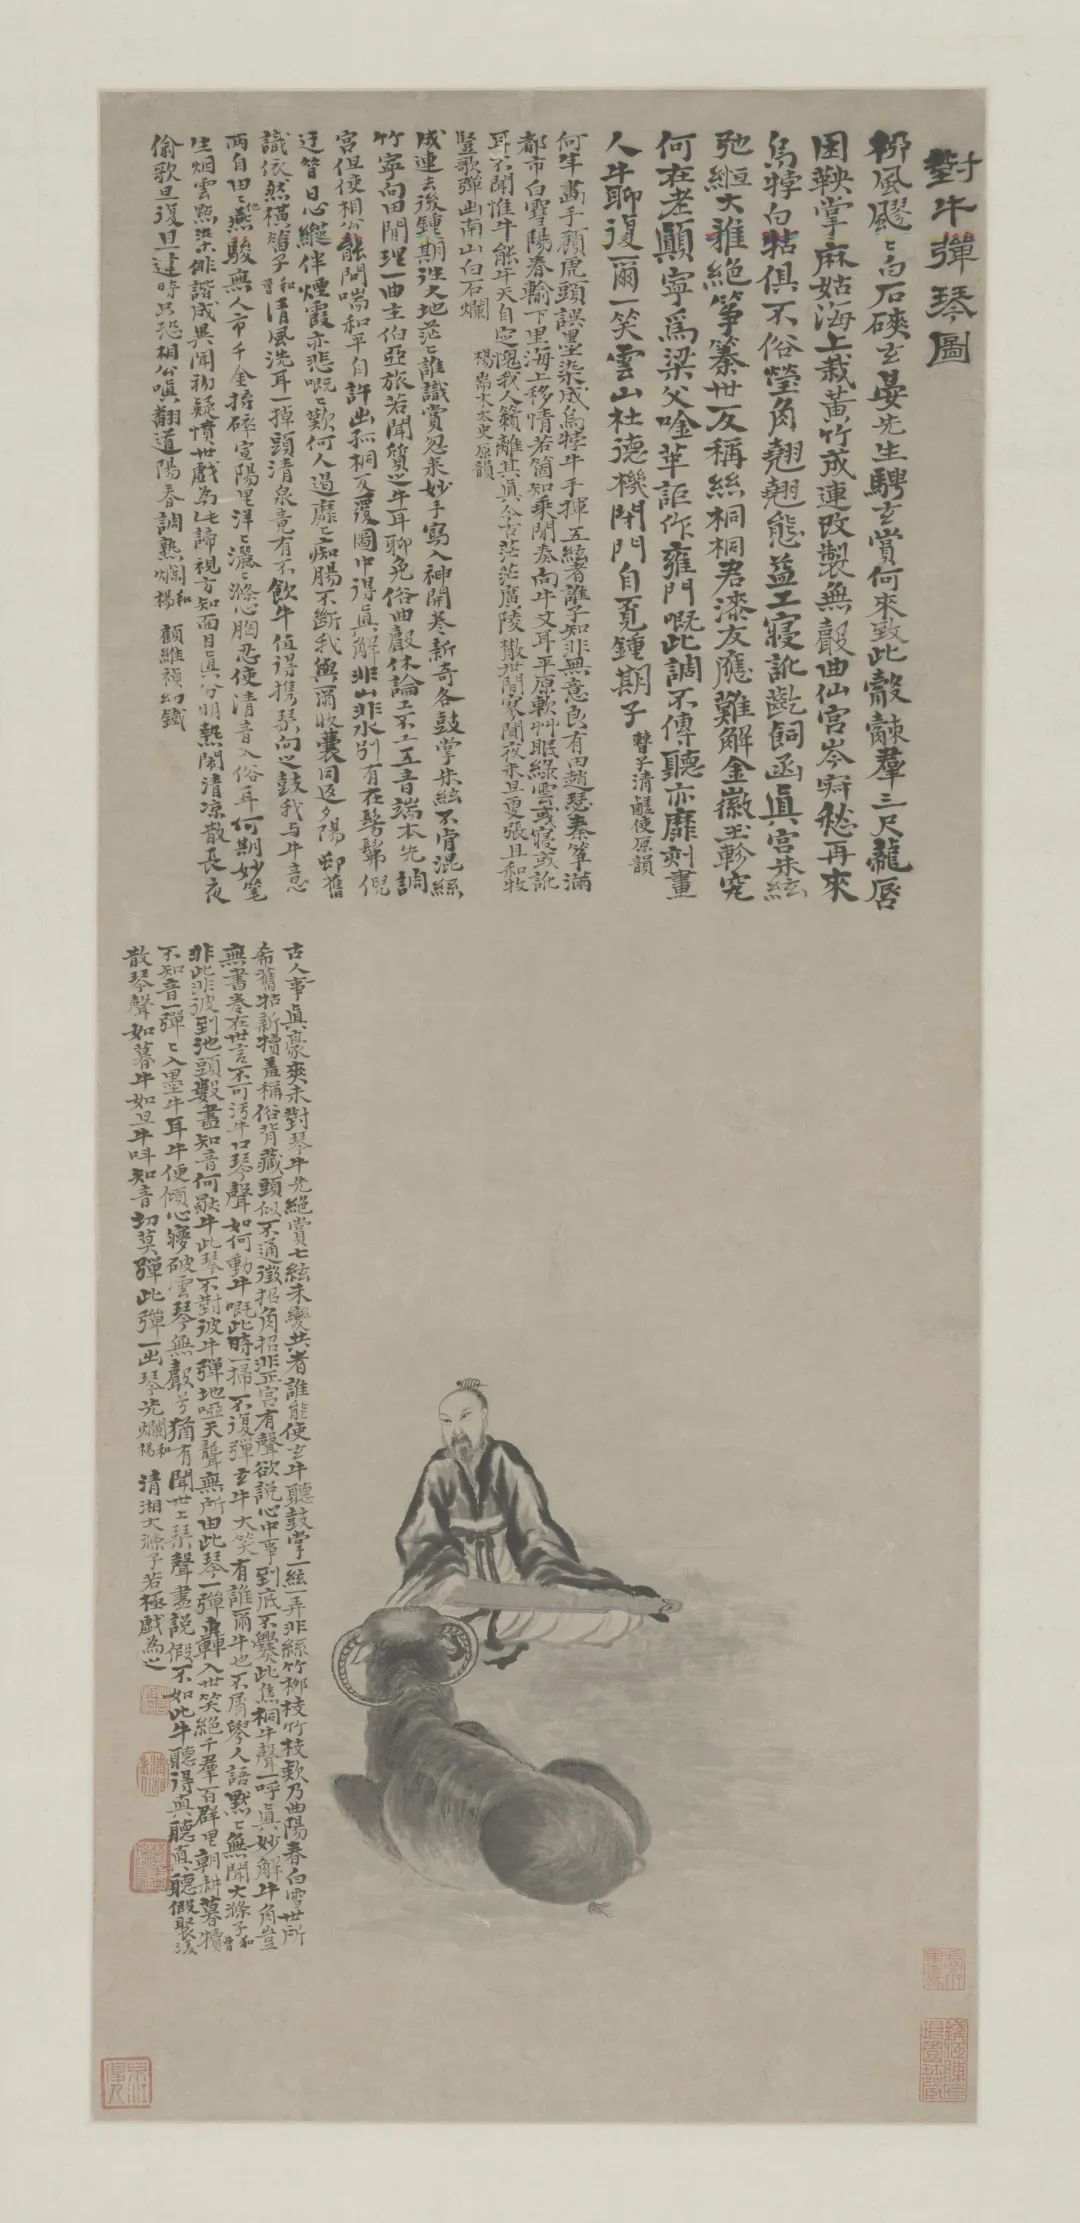 對牛彈琴圖
柳風颼〻白石硤玄晏先生騁玄賞何來致此觳觫羣三尺龍唇
困鞅掌麻姑海上栽黃竹成連改製無聲曲仙宮岑寂愁再來
烏牸白牯俱不俗瑩角翹翹態益工寢訛齕飼函真宮朱絃
弛縆大雅絕箏築世反稱絲桐桐君漆友應難解金徽玉軫究
何在老顛寧為梁父唫莘詎作雍門嘅此調不傳聽亦靡刻畫
人牛聊復爾一笑雲山杜德機閉門自覓鍾期子 楝子清鹺使原韻
何年畫手顧虎頭誤墨染成烏牸牛手揮五絃者誰子知非無意良有由趙瑟秦箏滿
都市白雪陽春輸下里海上移情若箇知乘閒奏向牛丈耳平原軟艸眠綠雲或寢或訛
耳不聞惟牛能牛天自定愧我人籟離其真今古茫茫廣陵散世間寥闃夜未旦更張且和牧
豎歌彈出南山白石爛 楊耑木太史原韻
成連去後鍾期往大地茫〻誰識賞忽來妙手寫入神開卷新奇各鼓掌朱絃不肯混絲
竹寧向田間理一曲主伯亞旅若聞質之牛耳聊免俗曲嚴休論工不工五音端本先調
宮但使相公能問喘和平自許出孤桐反覆圖中得真解非山非水別有在髣髴倪
迂昔日心縱伴煙霞亦悲嘅〻歎何人過靡〻痴腸不斷我與爾收囊同返夕陽邨舊
識依然橫笛子 和曹 清風洗耳一掉頭清泉竟有不飲牛值得攜琴向之鼓我与牛意
兩自由〻他燕駿無人市千金掎碌宣陽里洋〻灑〻滌心胸忍使清音入俗耳何期妙笔
生烟雲點染俳諧成異聞初疑憤世戲為此諦視方知面目真分明熱鬧清涼散長夜
偷歌旦復旦逢時只恐相公嗔翻道陽春調熟爛 和楊 顧維禎幻鐵
古人事真豪爽未對琴牛先絕賞七絃未變共者誰能使玄牛聽鼓掌一絃一弄非絲竹柳枝竹枝欸乃曲陽春白雪世所
希舊牯新犢羞稱俗背藏頭似不通徵招角招非正宮有聲欲說心中事到底不爨此焦桐牛聲一呼真妙解牛角豈
無書卷在世言不可污牛口琴聲如何動牛嘅此時一掃不復彈玄牛大笑有誰爾牛也不屑學人語默〻無聞大滌子 和曹
非此非彼到池頭數盡知音何獨牛此琴不對彼牛彈地啞天聾無所由此琴一彈轟入世笑絕千羣百群里朝耕暮犢
不知音一彈〻入墨牛耳牛便傾心夢破雲琴無聲兮猶有聞世上琴聲盡說假不如此牛聽得真聽真聽假聚後
散琴聲如暮牛如旦牛叫知音切莫彈此彈一出琴先爛 和楊 清湘大滌子若極戲為之